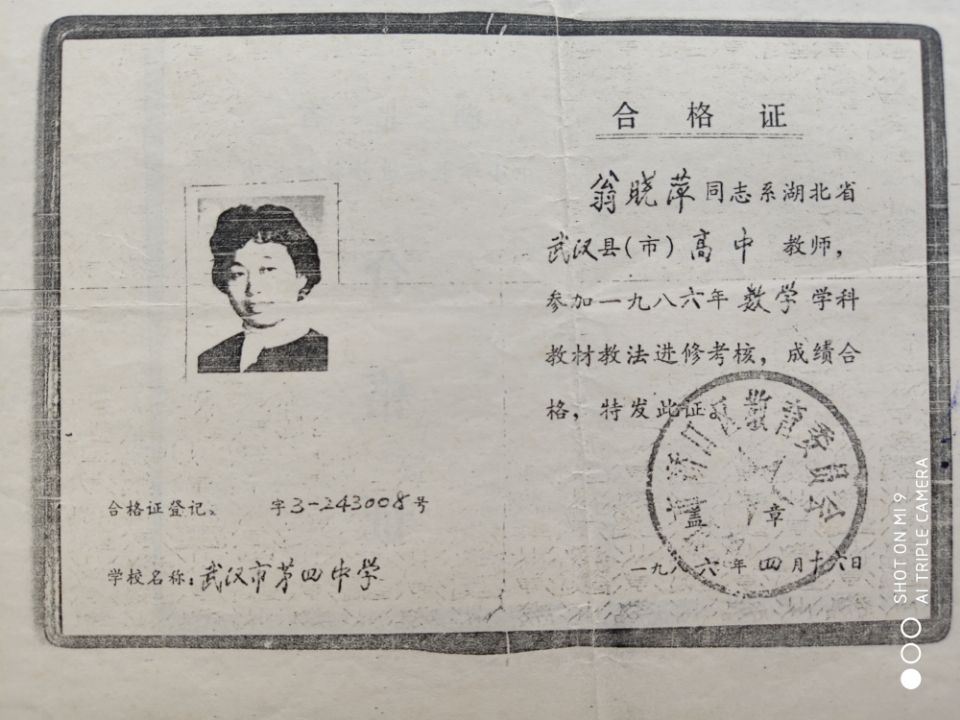 合格证
翁晓萍同志系湖北省
武汉县(市)高中 教师,
参加一九八六年数学学科
教材教法进修考核,成绩合
格,特发此证。
教育委员会
盖 章
一九八六年四月十六日
合格证登记: 字3-243008号
学校名称:武汉市第四中学
SHOT ON MI 9
AI TRIPLE CAMERA